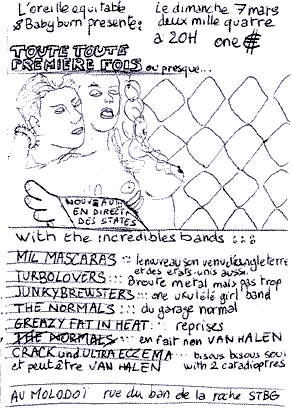 L'oreille equitable
& Babyburn presente:
Le dimanche 7 mars
deux mille quatre
à 20H one
TOUTE TOUTE
PREMIERE FOIS ou presque...
NOUVEAUTE
EN DIRECT
DES STATES
with the incredibles bands :::
MIL MASCARAS :: le nouveau son venu d'angleterre
et des etats-unis aussi.
TURBOLOVERS ::: route metal mais pas trop
JUNKYBREWSTERS ::: one ukulélé girl band
THE NORMALS ::: du garage normal
GREAZY FAT IN HEAT :: reprises
THE NORMALS ::: en fait non VAN HALEN
CRACK und ULTRA ECZEMA ::: bisous bisous
et peut être VAN HALEN with 2 catadioptres
AU MOLODOÏ rue du ban de la roche STBG